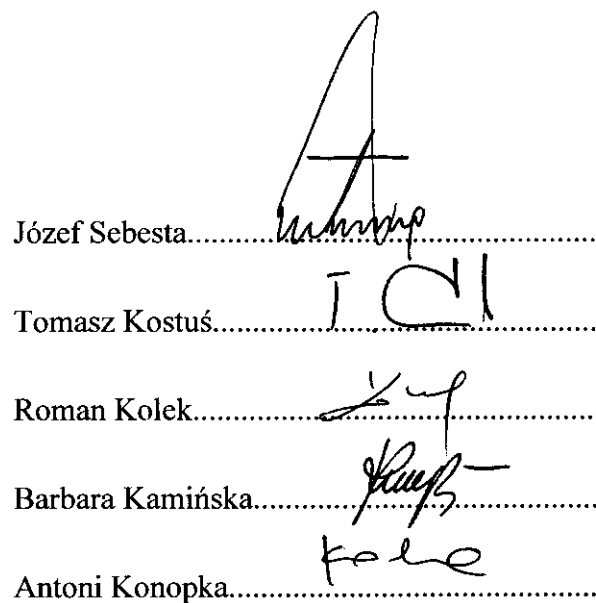 Józef Sebesta....................................................
Tomasz Kostuś................................................
Roman Kolek...................................................
Barbara Kamińska..........................................
Antoni Konopka..............................................